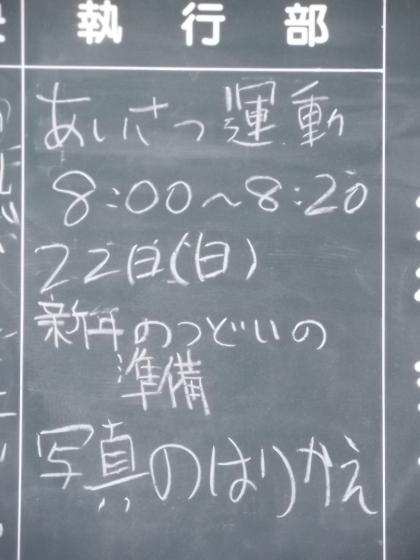 執行部
あいさつ運動
8:00～8:20
22日(日)
新年のつどいの
準備
写真のはりかえ